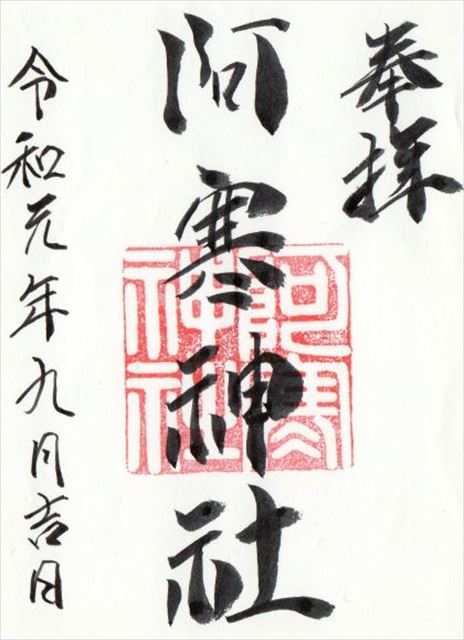 奉拝
阿寒神社
阿寒神社
令和元年九月吉日